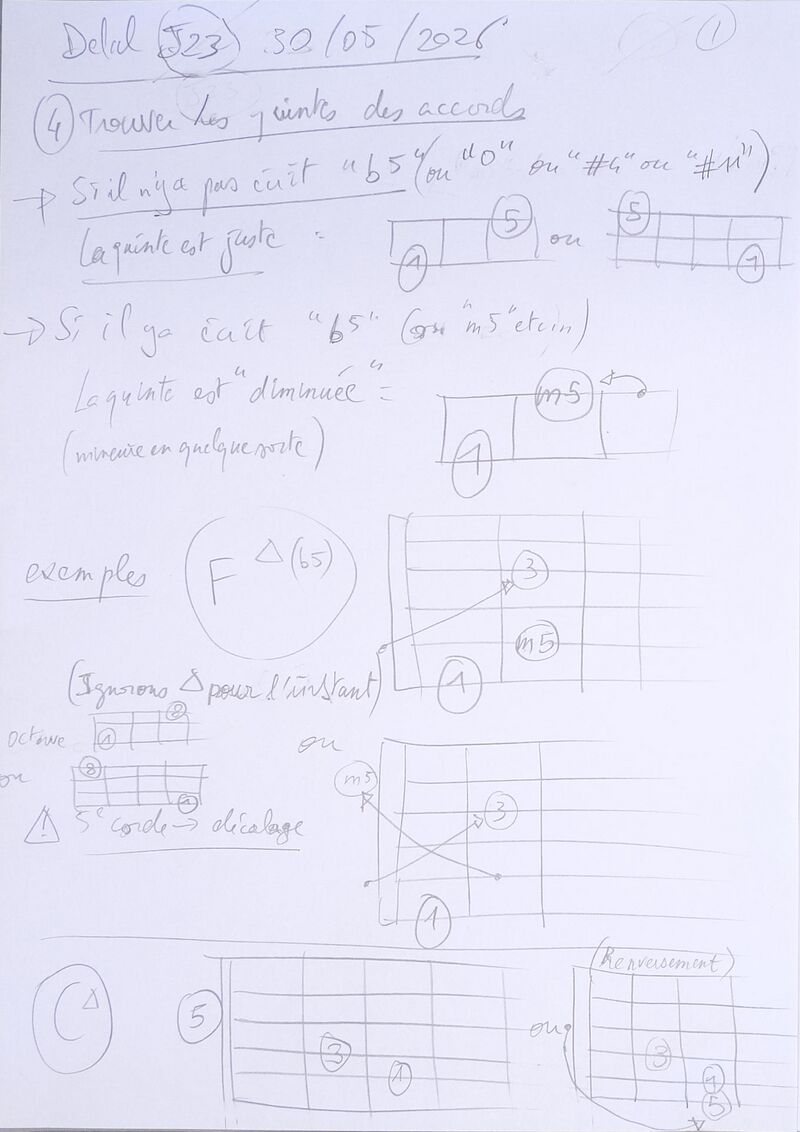 Delal J23 30/05/2026
1
4 Trouver les quintes des accords
→ Si il n'y a pas écrit "b5" (ou "O" ou "#4" ou "#11")
La quinte est juste =
5
1
ou
5
1
→ Si il y a écrit "b5" (ou "m5" etc...)
La quinte est "diminuée" =
(mineure en quelque sorte)
m5
1
exemples
F Δ (b5)
3
m5
1
(Ignorons Δ pour l'instant)
octave
8
1
ou
8
1
⚠ 5e corde → décalage
ou
m5
3
1
C Δ
5
3
1
ou
(Renversement)
3
1
5